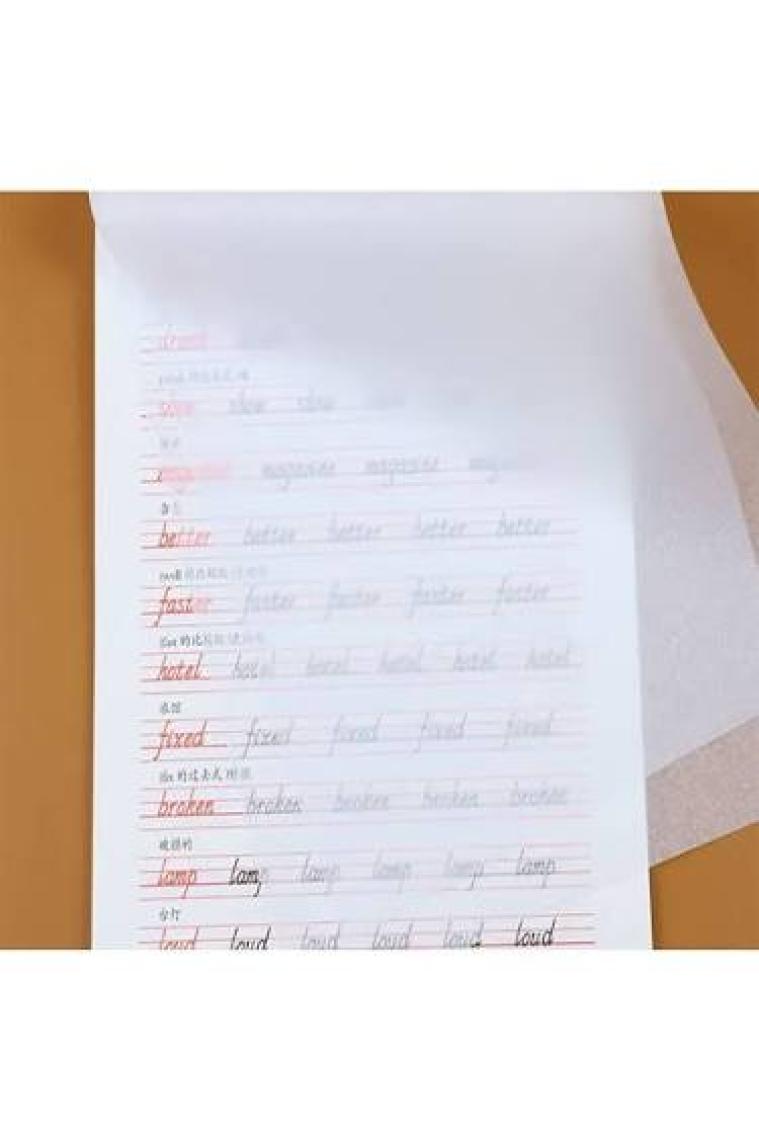 drank
read 的过去式 读
slow slow slow
magazine magazine magazine
杂志
better better better better better
faster faster faster faster faster
hotel hotel hotel hotel hotel hotel
旅馆
fixed fixed fixed fixed fixed
fix 的过去式 修理
broken broken broken broken broken
破损的
lamp lamp lamp lamp lamp lamp
台灯
loud loud loud loud loud loud